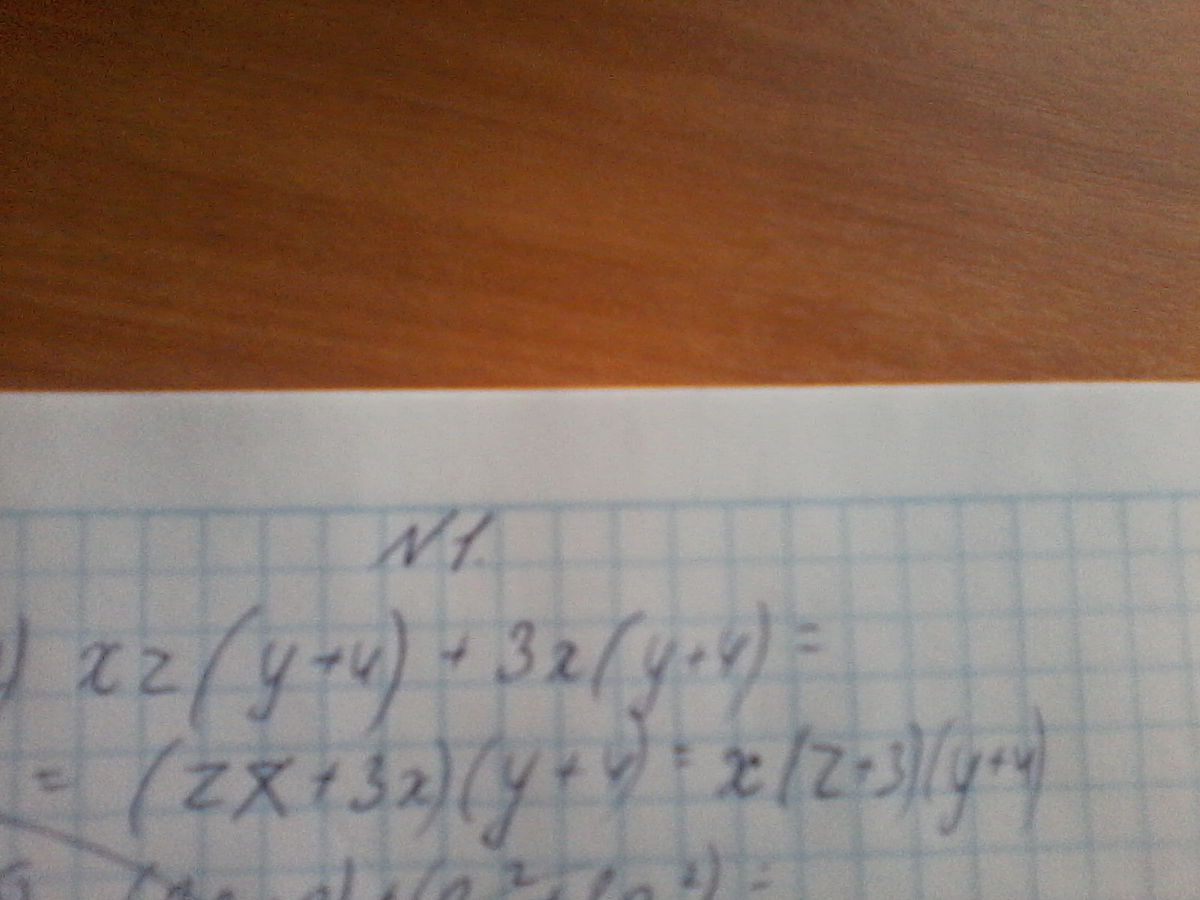 N 1.
) xz(y+4) + 3x(y+4) =
= (zx+3x)(y+4) = x(z+3)(y+4)